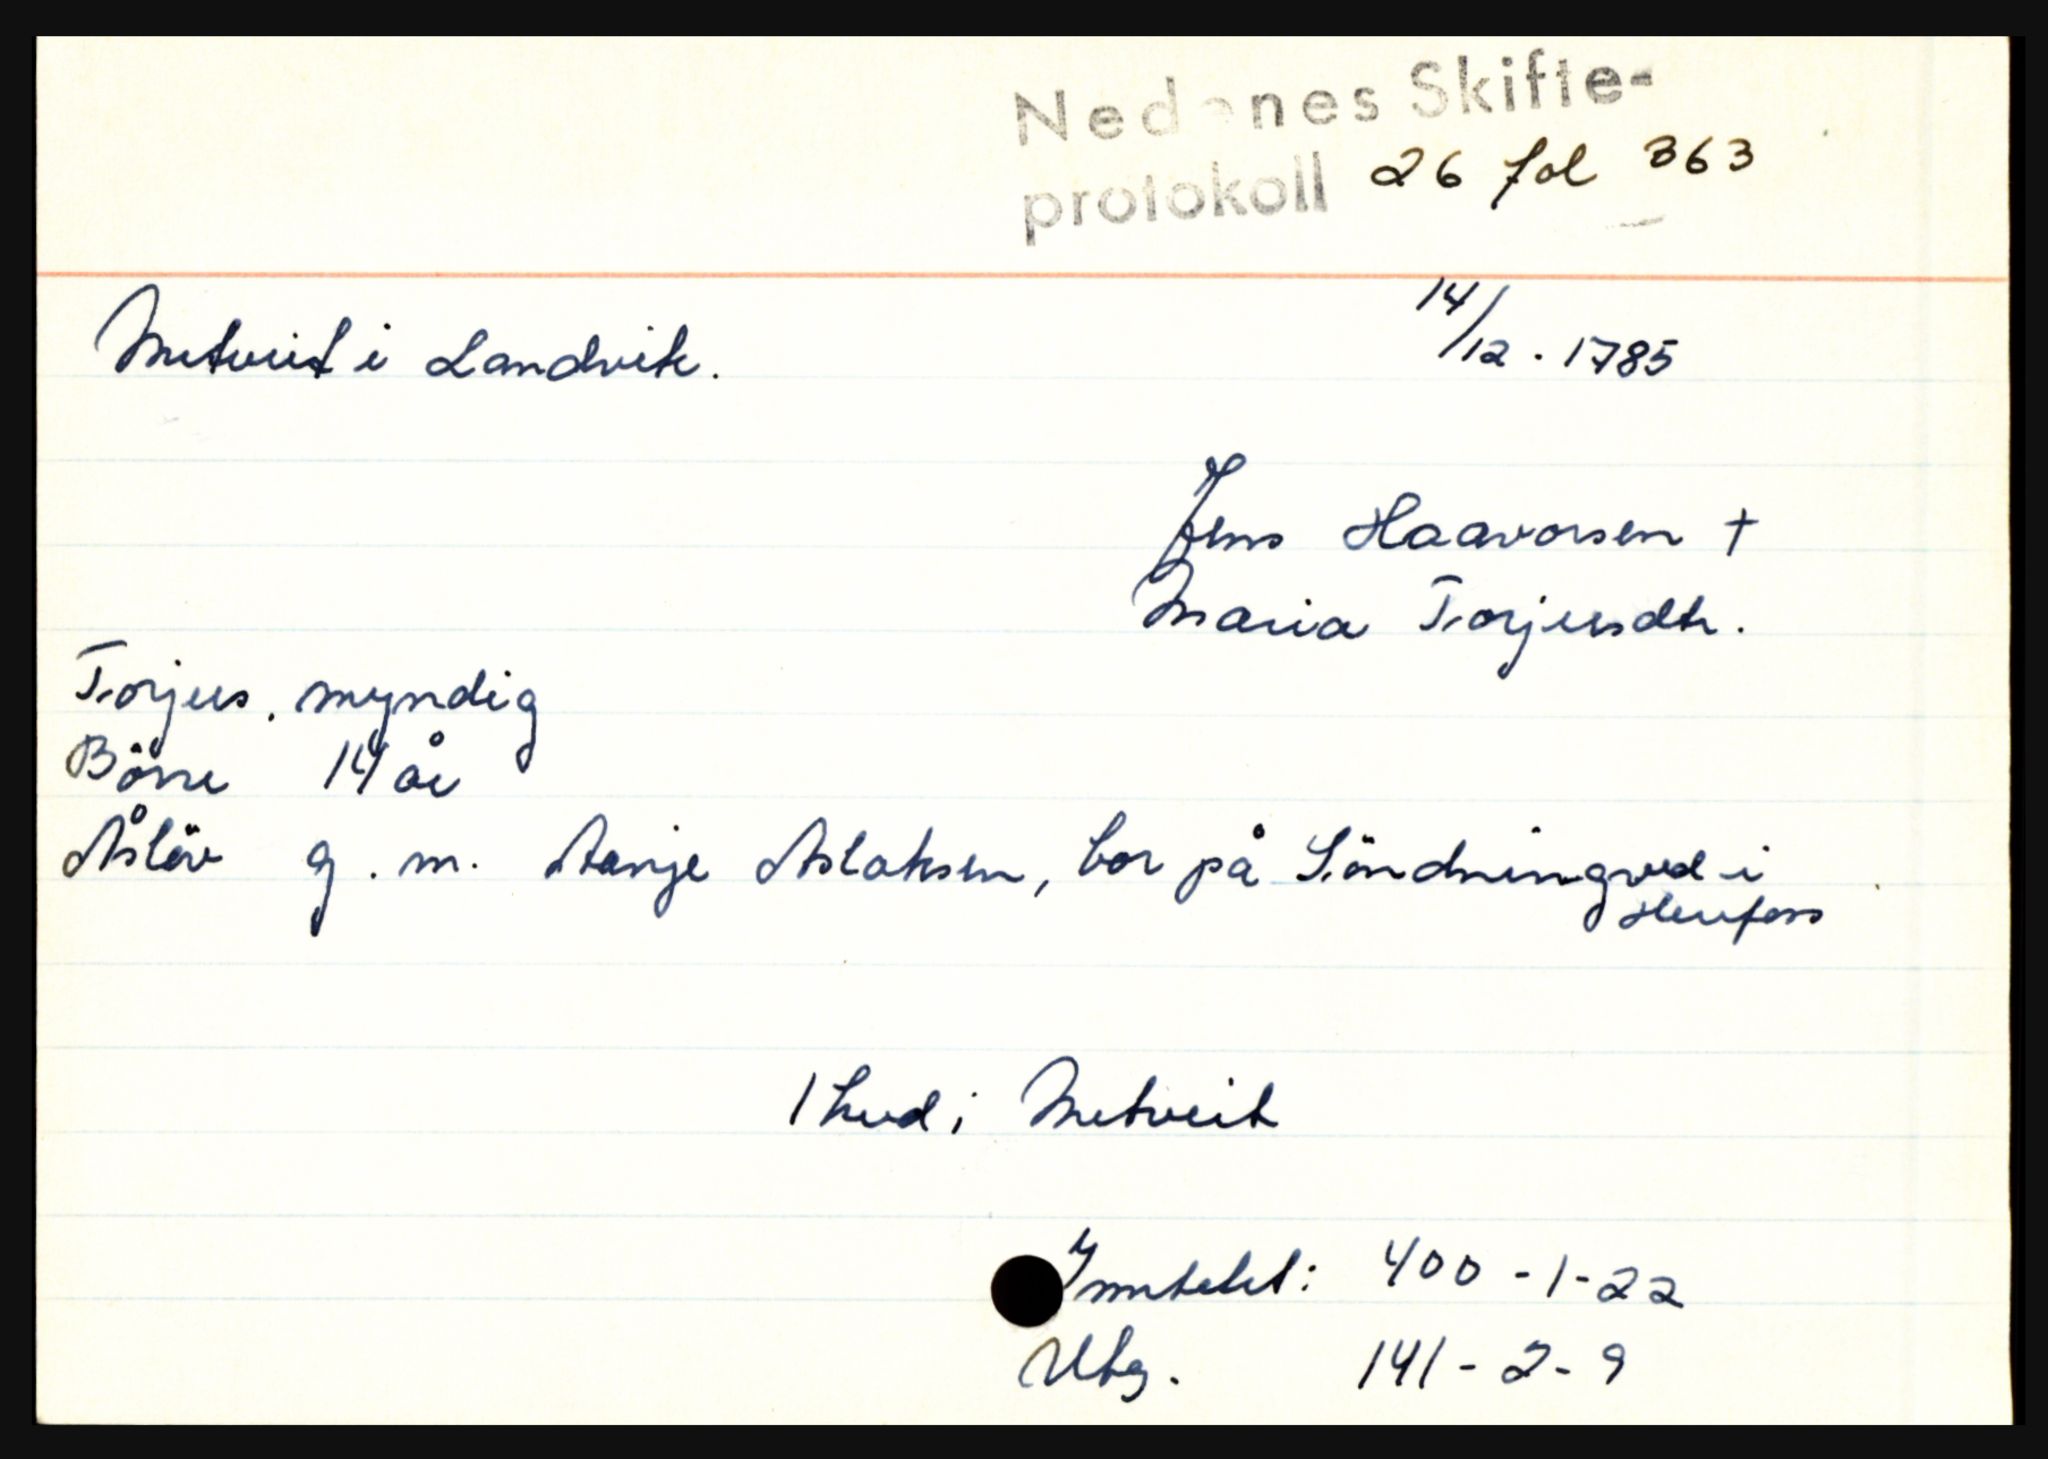 Nedenes Skifte-
protokoll 26 fol 363
Metveit i Landvik. 14/12 . 1785
Jens Haavorsen †
Maria Torjusdtr.
Torjus. myndig
Börre 14 år
Åslöv g. m. Aanje Aslaksen, bor på Söndningved i
Herefoss
1 hud i Metveit
Inntekt: 400 - 1 - 22
Utg. 141 - 2 - 9